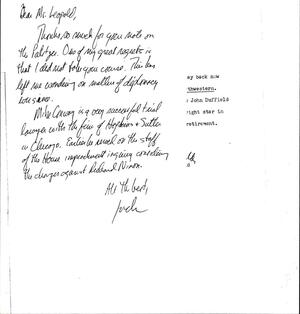 Dear Mr. Leopold,
Thanks so much for your note on
the Pulitzer. One of my great regrets is
that I did not take your course. This has
left me wondering on matters of diplomacy
ever since.
Mike Conway is a very successful trial
lawyer with the firm of Hopkins & Sutter
in Chicago. Earlier he served on the staff
of the House impeachment inquiry considering
the charges against Richard Nixon.
All the best,
Jack
ay back now
thwestern.
: John Duffield
right star in
retirement.